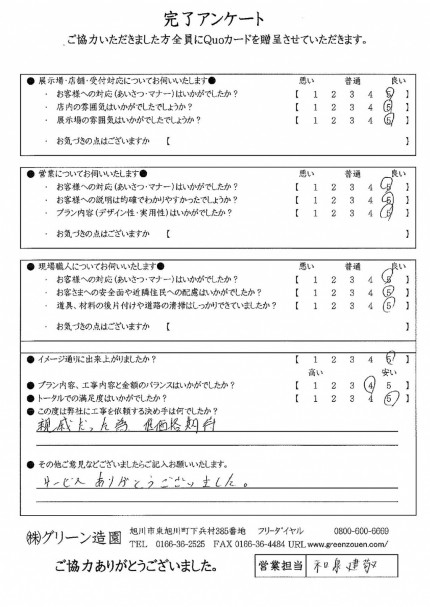 完了アンケート
ご協力いただきました方全員にQuoカードを贈呈させていただきます。
● 展示場・店舗・受付対応についてお伺いいたします● 悪い 普通 良い
・ お客様への対応(あいさつ・マナー)はいかがでしたか? 【 1 2 3 4 5 】
・ 店内の雰囲気はいかがでしたでしょうか? 【 1 2 3 4 5 】
・ 展示場の雰囲気はいかがでしたか? 【 1 2 3 4 5 】
・ お気づきの点はございますか 【 】
● 営業についてお伺いいたします● 悪い 普通 良い
・ お客様への対応(あいさつ・マナー)はいかがでしたか? 【 1 2 3 4 5 】
・ お客様への説明は的確でわかりやすかったでしょうか? 【 1 2 3 4 5 】
・ プラン内容(デザイン性・実用性)はいかがでしたか? 【 1 2 3 4 5 】
・ お気づきの点はございますか 【 】
● 現場職人についてお伺いいたします● 悪い 普通 良い
・ お客様への対応(あいさつ・マナー)はいかがでしたか? 【 1 2 3 4 5 】
・ お客さまへの安全面や近隣住民への配慮はいかがでしたか? 【 1 2 3 4 5 】
・ 道具、材料の後片付けや道路の清掃はしっかりできていましたか? 【 1 2 3 4 5 】
・ お気づきの点はございますか 【 】
● イメージ通りに出来上がりましたか? 【 1 2 3 4 5 】
高い 安い
● プラン内容、工事内容と金額のバランスはいかがでしたか? 【 1 2 3 4 5 】
● トータルでの満足度はいかがでしたか? 【 1 2 3 4 5 】
● この度は弊社に工事を依頼する決め手は何でしたか?
親戚だった為 低価格期待
● その他ご意見などございましたらご記入お願いいたします。
サービス ありがとうございました。
㈱グリーン造園 旭川市東旭川町下兵村385番地 フリーダイヤル 0800-600-6669
TEL 0166-36-2525 FAX 0166-36-4484 URL www.greenzouen.com/
ご協力ありがとうございました。 営業担当